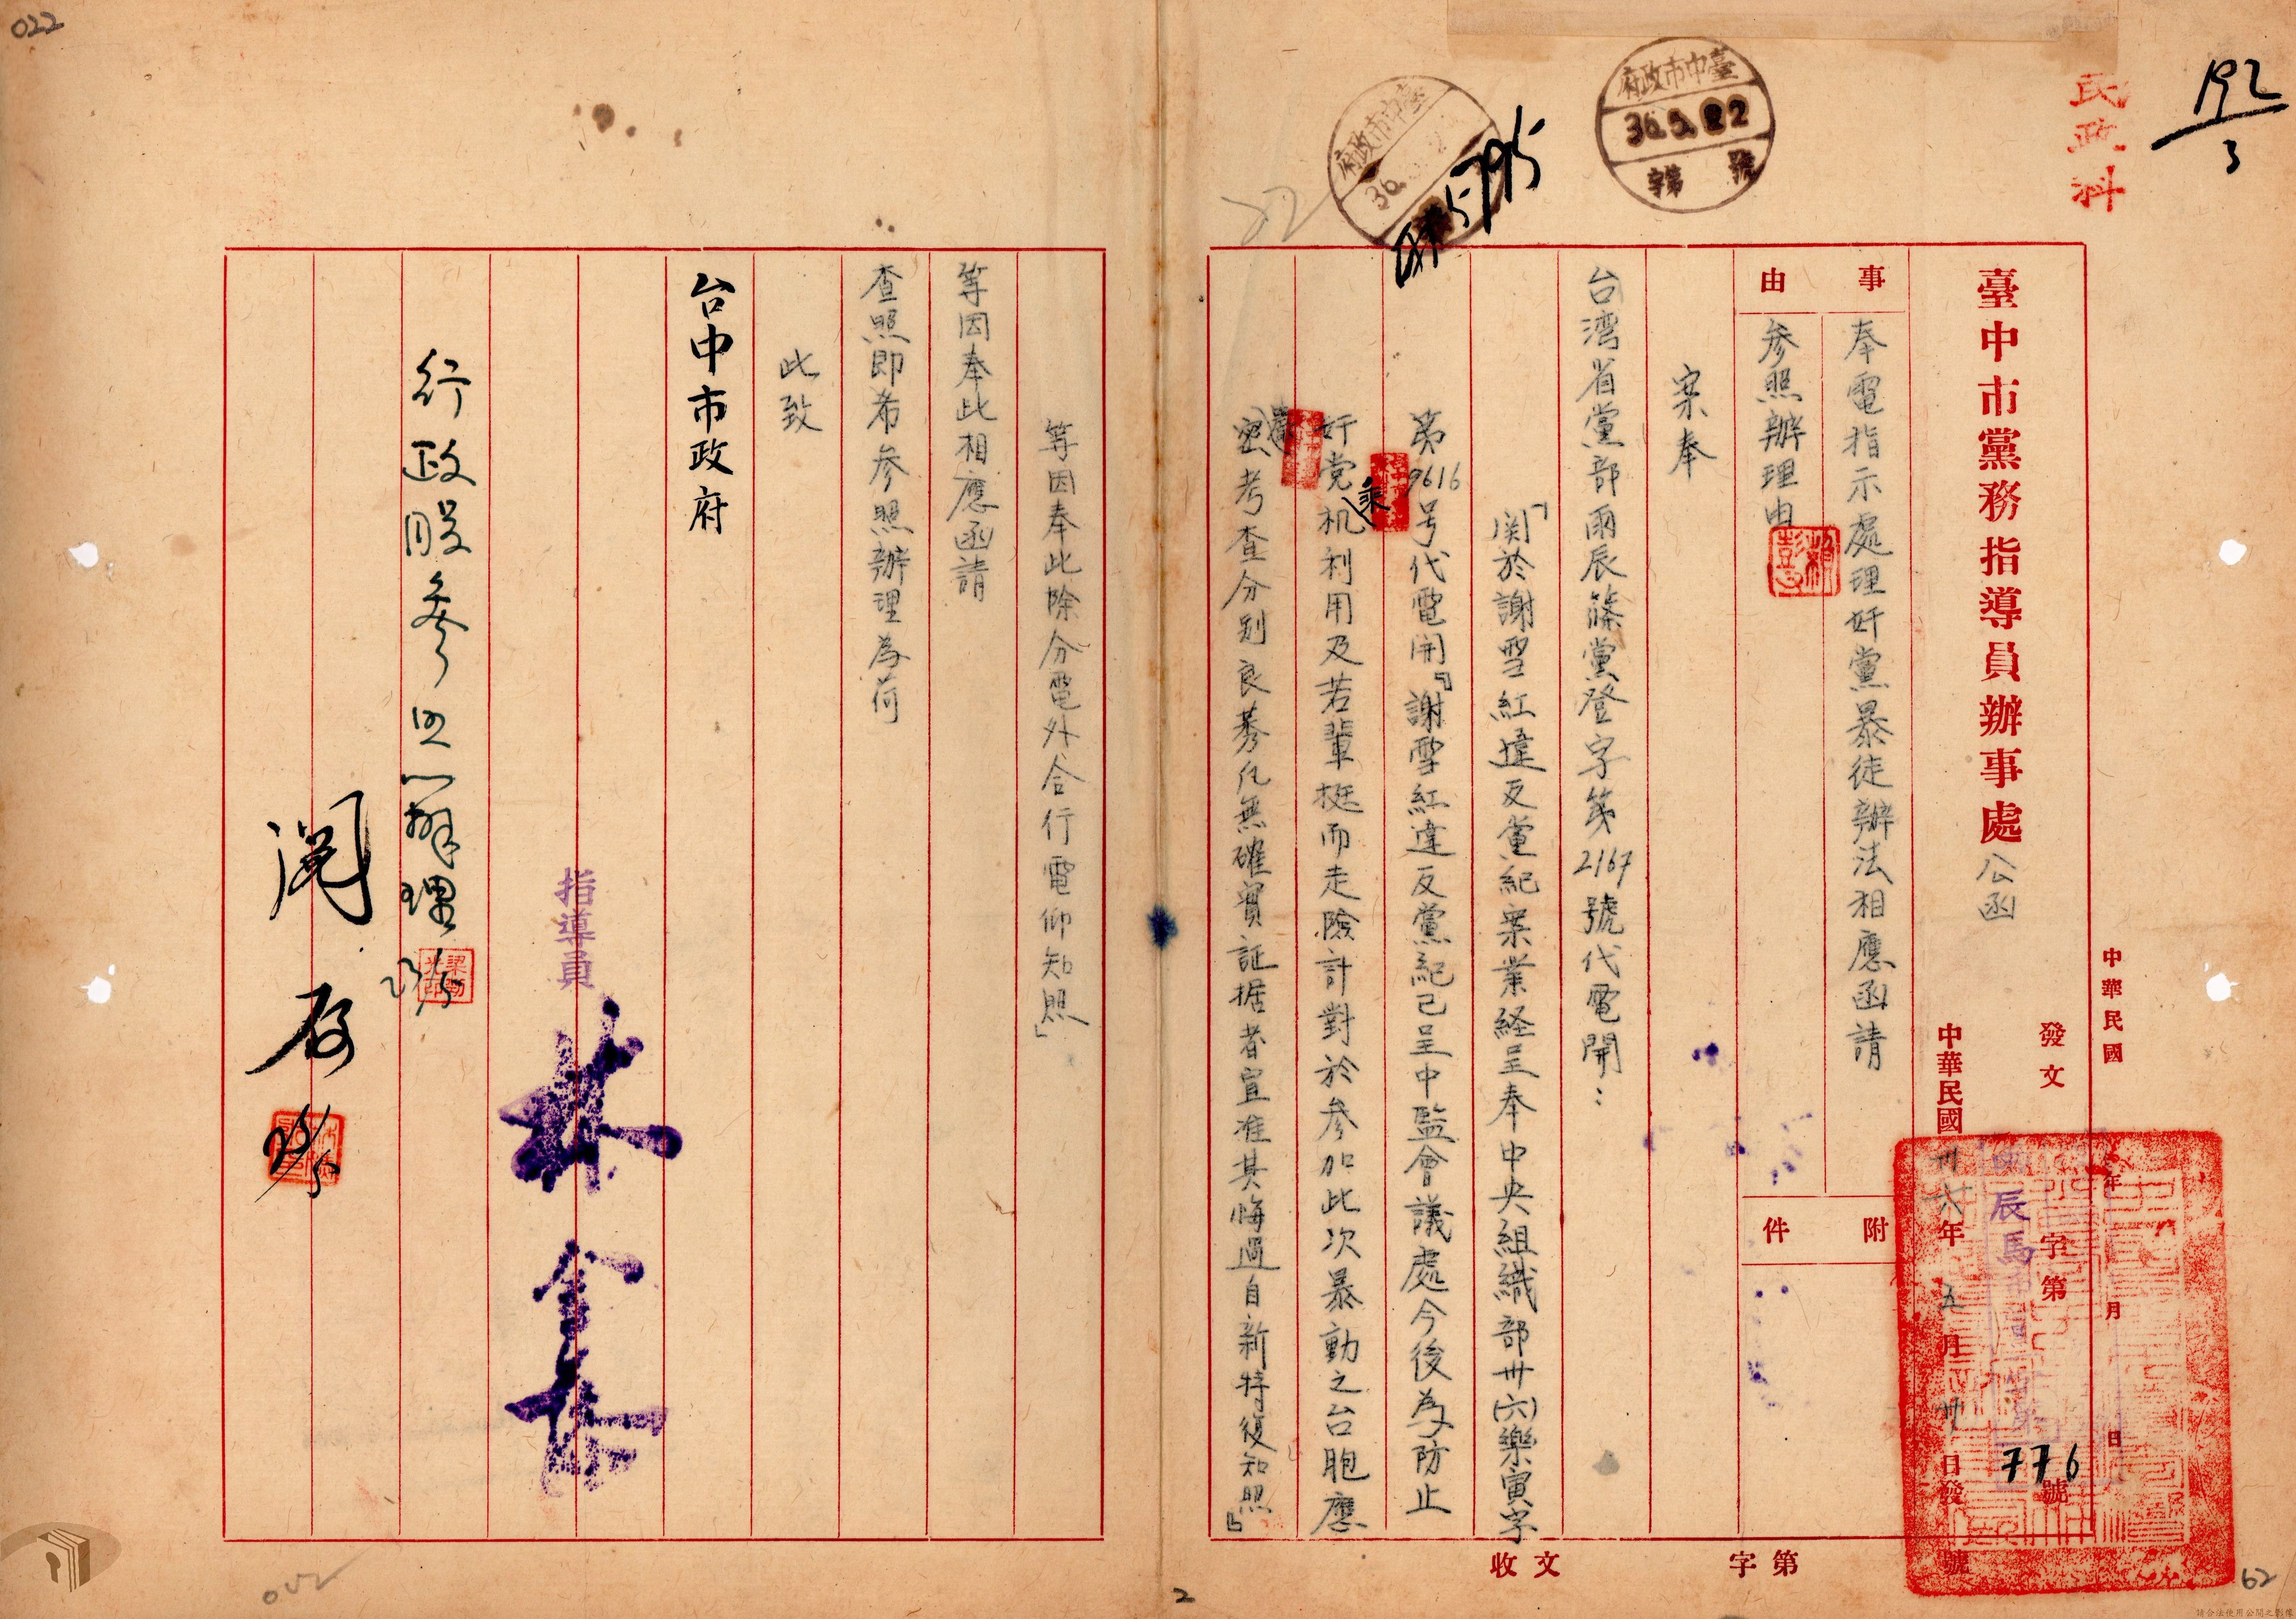 022
192
3
民政科
臺中市政府
36.5.22
字第 號
臺中市政府
36.
5795
臺中市黨務指導員辦事處公函
中華民國 年 月 日
發文 字第 776 號
中華民國卅六年五月廿日發
事由
奉電指示處理奸黨暴徒辦法相應函請
參照辦理由
附件
收文 字第 號
案奉
台湾省黨部雨辰篠黨登字第2167號代電開：
「関於謝雪紅違反黨紀案業経呈奉中央組織部卅(六)樂寅字
第9616号代電開『謝雪紅違反黨紀已呈中監會議處今後為防止
奸党乘机利用及若輩挺而走險計對於參加此次暴動之台胞應
嚴密考查分别良莠凡無確實証据者宜准其悔過自新特復知照』
等因奉此除分電外合行電仰知照」
等因奉此相應函請
查照即希參照辦理為荷
此致
台中市政府
指導員 林金
行政股參照辦理
23/5
2
62